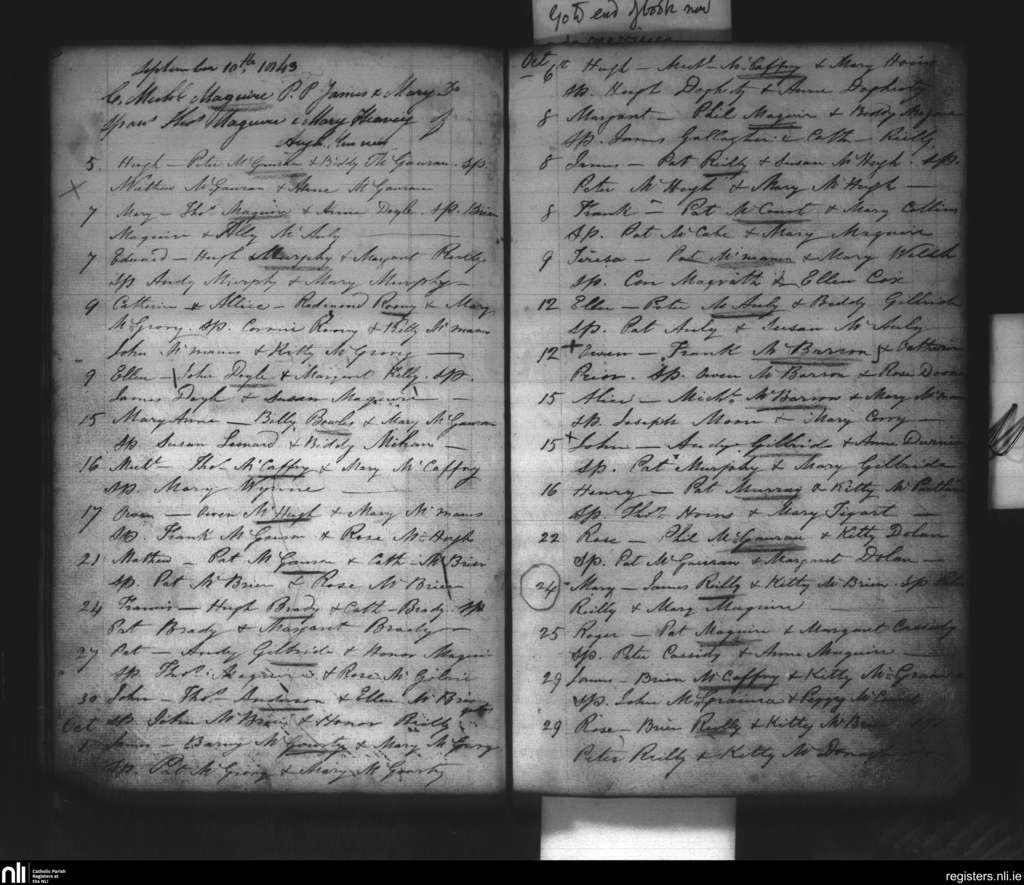 Go to end of book now
September 10th, 1843
C. Michl Maguire P.P James & Mary
Thos Maguire & Mary
5. Hugh - Peter McGauran & Biddy McGauran. Sp.
McGauran & Anne McGauran
7 Mary - Thos Maguire & Anne Doyle. Sp. Brien
Maguire & Ally McAuly
7 Edward - Hugh Murphy & Margaret Reilly
Sp Andy Murphy & Mary Murphy -
9 Catherine & Allice - Redmond Roony & Mary
McGrory. Sp. Cormic Roony & Kitty McManus
John McManus & Kitty McGrory -
9 Ellen - John Doyle & Margaret Kelly. Sp.
James Doyle & Susan Maguire -
15 Mary Anne - Billy Bowles & Mary McGauran
Sp Susan Leonard & Biddy Mihan -
16 Michl - Thos McCaffry & Mary McCaffry
Sp. Mary Wynne -
17 Owen - Owen McHugh & Mary McManus
Sp. Frank McGauran & Rose McHugh
21 Mathew - Pat McGauran & Cath - McBrien
Sp. Pat McBrien & Rose McBrien
24 Francis - Hugh Brady & Cath - Brady. Sp
Pat Brady & Margaret Brady -
27 Pat - Andy Gilbride & Honor Maguire
Sp Thos Maguire & Rose McGilbride
30 John - Thos Anderson & Ellen McBrien
Oct Sp. John McBrien & Honor Reilly
1 James - McGourty & Mary McGrory
Sp. Pat McGrory & Mary McGourty
Oct 6th Hugh - Michl McCaffry & Mary
Sp. Hugh Dogherty & Anne Dogherty
8 Margaret - Phil Maguire & Biddy Maguire
Sp. James Gallagher & Cath - Reilly
8 James - Pat Reilly & Susan McHugh. Sp.
Peter McHugh & Mary McHugh -
8 Frank - Pat McCourt & Mary Collins
Sp. Pat McCabe & Mary Maguire
9 Teresa - Pat McManus & Mary Walsh
Sp. Con Magrath & Ellen Cox
12 Ellen - Peter McAuly & Biddy Gilbride
Sp. Pat Auly & Susan McAuly -
12 Owen - Frank McBarron & Catherine
Prior. Sp. Owen McBarron & Rose
15 Alice - Michl McBarron & Mary McManus
Sp. Joseph Moon & Mary Corry -
15 John - Andy Gilbride & Anne
Sp. Pat Murphy & Mary Gilbride
16 Henry - Pat Murray & Kitty
Sp. Thos & Mary -
22 Rose - Phil McGauran & Kitty Dolan
Sp. Pat McGauran & Margaret Dolan -
24 Mary - James Reilly & Kitty McBrien. Sp. Peter
Reilly & Mary Maguire
25 Roger - Pat Maguire & Margaret Cassidy
Sp. Peter Cassidy & Anne Maguire -
29 James - Brien McCaffry & Kitty
Sp. John & Peggy
29 Rose - Brien Reilly & Kitty McBrien
Peter Reilly & Kitty McDonagh
nli Catholic Parish
Registers at
the NLI
registers.nli.ie